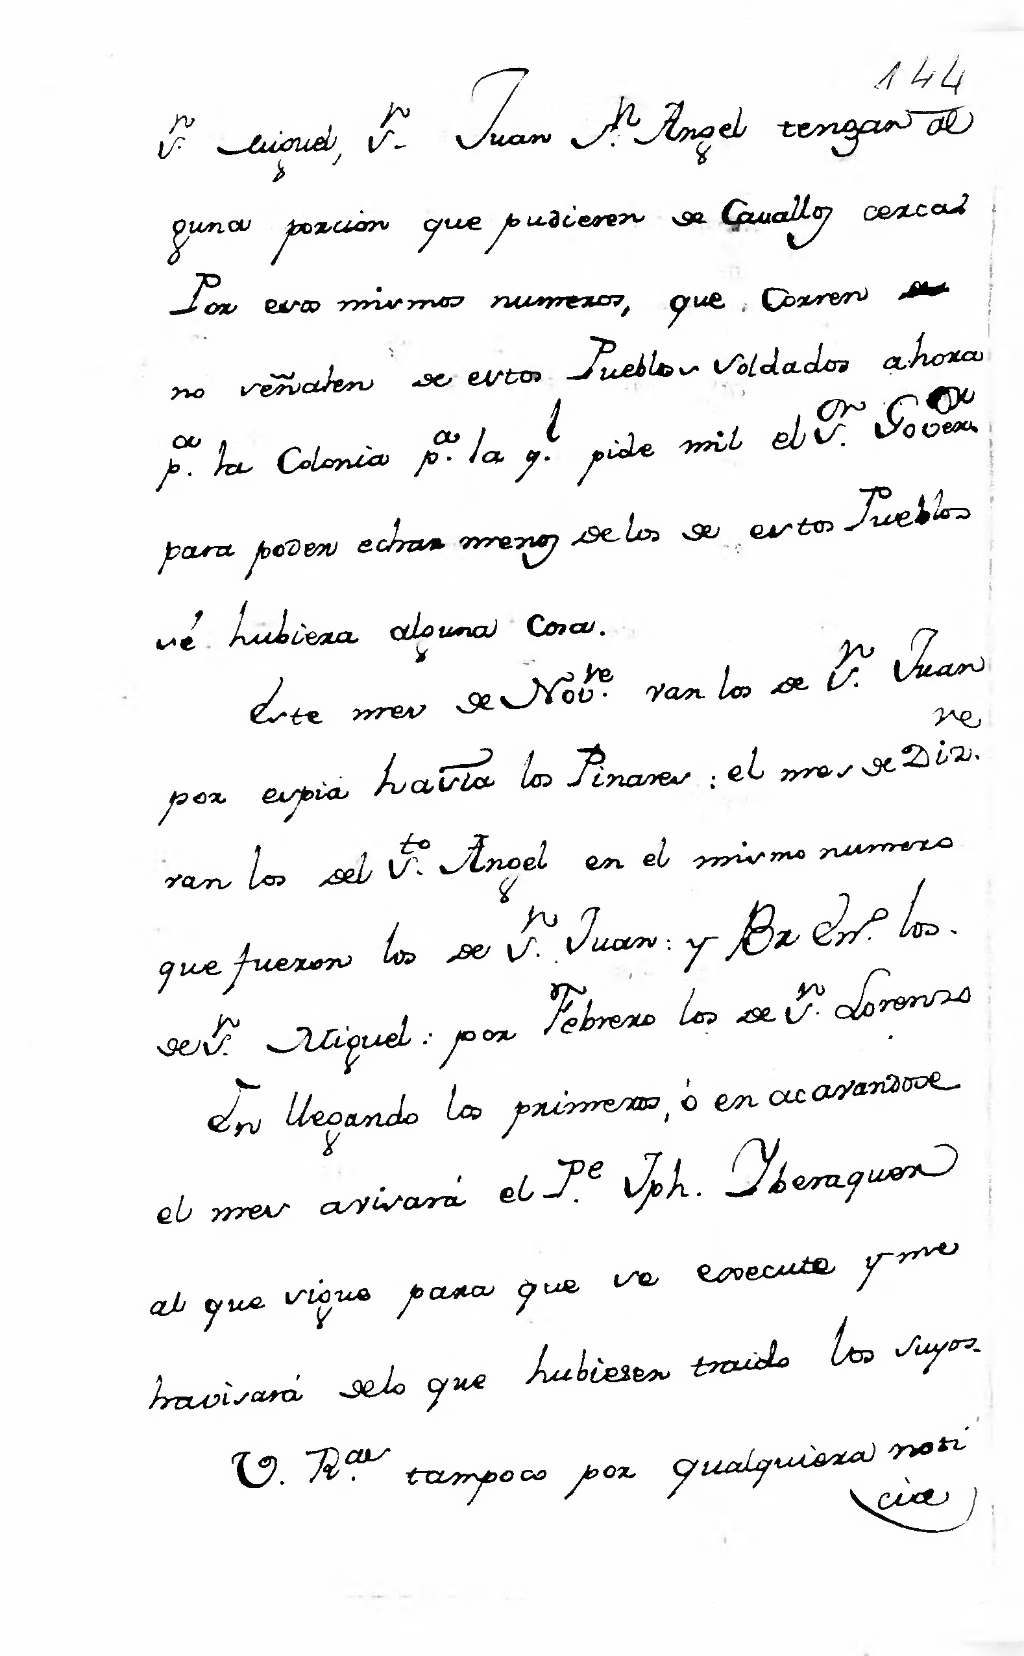 144
Sn. Miguel, Sn. Juan Sn. Angel tengan al
guna porcion que pudieren de Cauallos cercas
Por esos mismos numeros, que corren
no señalen de estos Pueblos soldados ahora
pa. la Colonia pa. la ql. pide mil el Sor. Govern.or
para poder echar menos de los de estos Pueblos
sé hubiera alguna cosa.
Este mes de Novre. van los de Sn. Juan
por espia havía los Pinares: el mes de Dizre.
van los del Sto. Angel en el mismo numero
que fueron los de Sn. Juan: y Pr Eno. los.
de Sn. Miguel: por Febrero los de Sn. Lorenzo
En llegando los primeros, ó en acavandose
el mes avisará el Pe. Jph. Yberaquer
al que sigue para que se execute y me
havisará delo que hubiesen traido los suyos.
V. Ras. tampoco por qualquiera noti
cia